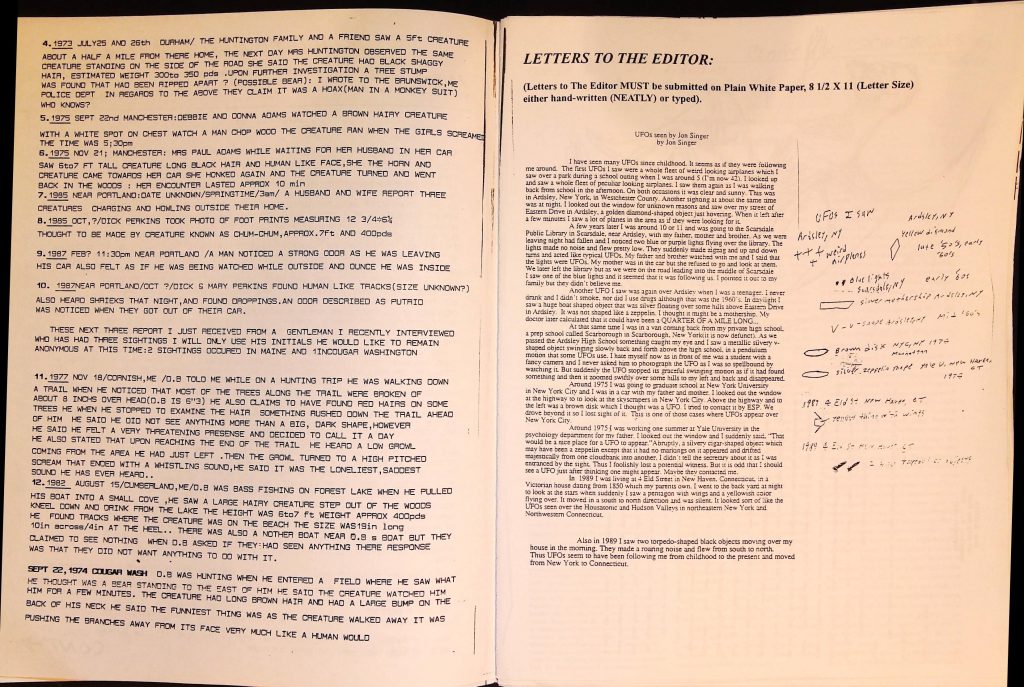 4.1973 JULY25 AND 26th DURHAM/ THE HUNTINGTON FAMILY AND A FRIEND SAW A 5ft CREATURE
ABOUT A HALF A MILE FROM THERE HOME, THE NEXT DAY MRS HUNTINGTON OBSERVED THE SAME
CREATURE STANDING ON THE SIDE OF THE ROAD SHE SAID THE CREATURE HAD BLACK SHAGGY
HAIR, ESTIMATED WEIGHT 300to 350 pds .UPON FURTHER INVESTIGATION A TREE STUMP
WAS FOUND THAT HAD BEEN RIPPED APART ? (POSSIBLE BEAR): I WROTE TO THE BRUNSWICK,ME
POLICE DEPT IN REGARDS TO THE ABOVE THEY CLAIM IT WAS A HOAX(MAN IN A MONKEY SUIT)
WHO KNOWS?
5.1975 SEPT 22nd MANCHESTER:DEBBIE AND DONNA ADAMS WATCHED A BROWN HAIRY CREATURE
WITH A WHITE SPOT ON CHEST WATCH A MAN CHOP WOOD THE CREATURE RAN WHEN THE GIRLS SCREAMED
THE TIME WAS 5;30pm
6.1975 NOV 21; MANCHESTER: MRS PAUL ADAMS WHILE WAITING FOR HER HUSBAND IN HER CAR
SAW 6to7 FT TALL CREATURE LONG BLACK HAIR AND HUMAN LIKE FACE,SHE THE HORN AND
CREATURE CAME TOWARDS HER CAR SHE HONKED AGAIN AND THE CREATURE TURNED AND WENT
BACK IN THE WOODS : HER ENCOUNTER LASTED APPROX 10 min
7.1985 NEAR PORTLAND:DATE UNKNOWN/SPRINGTIME/3am/ A HUSBAND AND WIFE REPORT THREE
CREATURES CHARGING AND HOWLING OUTSIDE THEIR HOME.
8.1985 OCT,?/DICK PERKINS TOOK PHOTO OF FOOT PRINTS MEASURING 12 3/4
THOUGHT TO BE MADE BY CREATURE KNOWN AS CHUM-CHUM,APPROX.7ft AND 400pds
9.1987 FEB? 11:30pm NEAR PORTLAND /A MAN NOTICED A STRONG ODOR AS HE WAS LEAVING
HIS CAR ALSO FELT AS IF HE WAS BEING WATCHED WHILE OUTSIDE AND OUNCE HE WAS INSIDE
10. 1987NEAR PORTLAND/OCT ?/DICK & MARY PERKINS FOUND HUMAN LIKE TRACKS(SIZE UNKNOWN?)
ALSO HEARD SHRIEKS THAT NIGHT,AND FOUND DROPPINGS.AN ODOR DESCRIBED AS PUTRID
WAS NOTICED WHEN THEY GOT OUT OF THEIR CAR.
THESE NEXT THREE REPORT I JUST RECEIVED FROM A GENTLEMAN I RECENTLY INTERVIEWED
WHO HAS HAD THREE SIGHTINGS I WILL ONLY USE HIS INITIALS HE WOULD LIKE TO REMAIN
ANONYMOUS AT THIS TIME:2 SIGHTINGS OCCURED IN MAINE AND 1INCOUGAR WASHINGTON
11.1977 NOV 18/CORNISH,ME /D.B TOLD ME WHILE ON A HUNTING TRIP HE WAS WALKING DOWN
A TRAIL WHEN HE NOTICED THAT MOST OF THE TREES ALONG THE TRAIL WERE BROKEN OF
ABOUT 8 INCHS OVER HEAD(D.B IS 6"3) HE ALSO CLAIMS TO HAVE FOUND RED HAIRS ON SOME
TREES HE WHEN HE STOPPED TO EXAMINE THE HAIR SOMETHING RUSHED DOWN THE TRAIL AHEAD
OF HIM HE SAID HE DID NOT SEE ANYTHING MORE THAN A BIG, DARK SHAPE,HOWEVER
HE SAID HE FELT A VERY THREATENING PRESENSE AND DECIDED TO CALL IT A DAY
HE ALSO STATED THAT UPON REACHING THE END OF THE TRAIL HE HEARD A LOW GROWL
COMING FROM THE AREA HE HAD JUST LEFT .THEN THE GROWL TURNED TO A HIGH PITCHED
SCREAM THAT ENDED WITH A WHISTLING SOUND,HE SAID IT WAS THE LONELIEST,SADDEST
SOUND HE HAS EVER HEARD..
12.1982 AUGUST 15/CUMBERLAND,ME/D.B WAS BASS FISHING ON FOREST LAKE WHEN HE PULLED
HIS BOAT INTO A SMALL COVE ,HE SAW A LARGE HAIRY CREATURE STEP OUT OF THE WOODS
KNEEL DOWN AND DRINK FROM THE LAKE THE HEIGHT WAS 6to7 ft WEIGHT APPROX 400pds
HE FOUND TRACKS WHERE THE CREATURE WAS ON THE BEACH THE SIZE WAS19in long
10in across/4in AT THE HEEL.. THERE WAS ALSO A NOTHER BOAT NEAR D.B s BOAT BUT THEY
CLAIMED TO SEE NOTHING WHEN D.B ASKED IF THEY HAD SEEN ANYTHING THERE RESPONSE
WAS THAT THEY DID NOT WANT ANYTHING TO DO WITH IT.
SEPT 22,1974 COUGAR WASH D.B WAS HUNTING WHEN HE ENTERED A FIELD WHERE HE SAW WHAT
HE THOUGHT WAS A BEAR STANDING TO THE EAST OF HIM HE SAID THE CREATURE WATCHED HIM
HIM FOR A FEW MINUTES. THE CREATURE HAD LONG BROWN HAIR AND HAD A LARGE BUMP ON THE
BACK OF HIS NECK HE SAID THE FUNNIEST THING WAS AS THE CREATURE WALKED AWAY IT WAS
PUSHING THE BRANCHES AWAY FROM ITS FACE VERY MUCH LIKE A HUMAN WOULD
LETTERS TO THE EDITOR:
(Letters to The Editor MUST be submitted on Plain White Paper, 8 1/2 X 11 (Letter Size)
either hand-written (NEATLY) or typed).
UFOs seen by Jon Singer
by Jon Singer
I have seen many UFOs since childhood. It seems as if they were following
me around. The first UFOs I saw were a whole fleet of weird looking airplanes which I
saw over a park during a school outing when I was around 5 (I'm now 42). I looked up
and saw a whole fleet of peculiar looking airplanes. I saw them again as I was walking
back from school in the afternoon. On both occasions it was clear and sunny. This was
in Ardsley, New York, in Westchester County. Another sighting at about the same time
was at night. I looked out the window for unknown reasons and saw over my street of
Eastern Drive in Ardsley, a golden diamond-shaped object just hovering. When it left after
a few minutes I saw a lot of planes in the area as if they were looking for it.
A few years later I was around 10 or 11 and was going to the Scarsdale
Public Library in Scarsdale, near Ardsley, with my father, mother and brother. As we were
leaving night had fallen and I noticed two blue or purple lights flying over the library. The
lights made no noise and flew pretty near. They suddenly made zigzag and up and down
turns and acted like typical UFOs. My father and brother watched with me and I said that
the lights were UFOs. My mother was in the car but she refused to go and look at them.
We later left the library but as we were on the road leading into the middle of Scarsdale
I saw one of the blue lights and it seemed that it was following us. I pointed it out to my
family but they didn't believe me.
Another UFO I saw was again over Ardsley when I was a teenager. I never
drank and I didn't smoke, nor did I use drugs although that was the 1960's. In daylight I
saw a huge boat shaped object that was silver floating over some hills above Eastern Drive
in Ardsley. It was not shaped like a zeppelin. I thought it might be a mothership. My
doctor later calculated that it could have been a QUARTER OF A MILE LONG...
At that same time I was in a van coming back from my private high school,
a prep school called Scarborough in Scarborough, New York(it is now defunct). As we
passed the Ardsley High School something caught my eye and I saw a metallic silvery v-
shaped object swinging slowly back and forth above the high school, in a pendulum
motion that some UFOs use. I hate myself now as in front of me was a student with a
fancy camera and I never asked him to photograph the UFO as I was so spellbound by
watching it. But suddenly the UFO stopped its graceful swinging motion as if it had found
something and then it zoomed swiftly over some hills to my left and back and disappeared.
Around 1975 I was going to graduate school at New York University
in New York City and I was in a car with my father and mother. I looked out the window
at the highway to to look at the skyscrapers in New York City. Above the highway and to
the left was a brown disk which I thought was a UFO. I tried to contact it by ESP. We
drove beyond it so I lost sight of it. This is one of those cases where UFOs appear over
New York City.
Around 1975 I was working one summer at Yale University in the
psychology department for my father. I looked out the window and I suddenly said, "That
would be a nice place for a UFO to appear." Abruptly, a silvery cigar-shaped object which
may have been a zeppelin except that it had no markings on it appeared and drifted
majestically from one cloudbank into another. I didn't tell the secretary about it as I was
entranced by the sight. Thus I foolishly lost a potential witness. But it is odd that I should
see a UFO just after thinking one might appear. Maybe they contacted me.
In 1989 I was living at 4 Eld Street in New Haven, Connecticut, in a
Victorian house dating from 1850 which my parents own. I went to the back yard at night
to look at the stars when suddenly I saw a pentagon with wings and a yellowish color
flying over. It moved in a south to north direction and was silent. It looked sort of like the
UFOs seen over the Housasonic and Hudson Valleys in northeastern New York and
Northwestern Connecticut.
Also in 1989 I saw two torpedo-shaped black objects moving over my
house in the morning. They made a roaring noise and flew from south to north.
Thus UFOs seem to have been following me from childhood to the present and moved
from New York to Connecticut.
UFOs I saw
Ardsley, NY
weird
airplanes
Ardsley, NY
Yellow diamond
late '50's, early
'60's
Blue lights
Scarsdale, NY
early '60s
silver mothership Ardsley, NY
V - v-shape Ardsley, NY mid '60's
Brown disk NYC, NY 1975
Manhattan
silver, zeppelin shape Yale U. New Haven,
CT
1975
1989 4 Eld St New Haven CT
with wings
1989 4 Eld St New Haven CT
2 torpedo objects